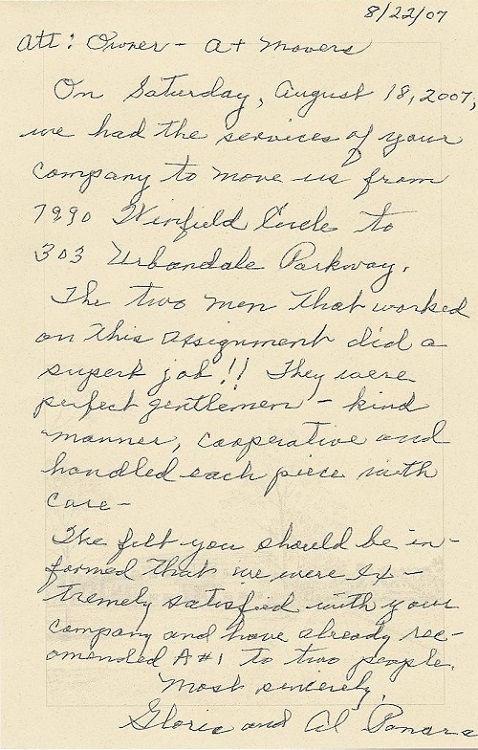 8/22/07
Att: Owner - A+ Movers
On Saturday, August 18, 2007,
we had the services of your
company to move us from
7990 Winfield Circle to
303 Urbandale Parkway.
The two men that worked
on this assignment did a
superb job!! They were
perfect gentlemen - kind
manner, cooperative and
handled each piece with
care -
We felt you should be in-
formed that we were ex-
tremely satisfied with your
company and have already rec-
omended A#1 to two people.
Most sincerely,
Gloria and Al Panara